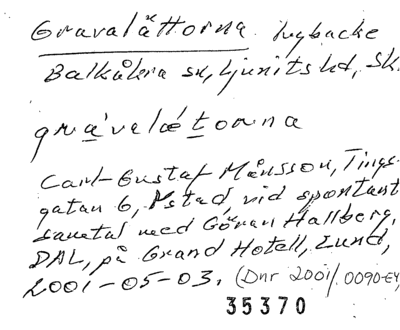 Gravalättorna. Nybacke
Balkåkra sn, Ljunits hd, Sk.
gra̱velǽt̲o̲nna
Carl-Gustaf Månsson, Tings-
gatan 6, Ystad vid spontant
samtal med Göran Hallberg,
DAL, på Grand Hotell, Lund,
2001-05-03. (Dnr 2001/0090-E4,
35370